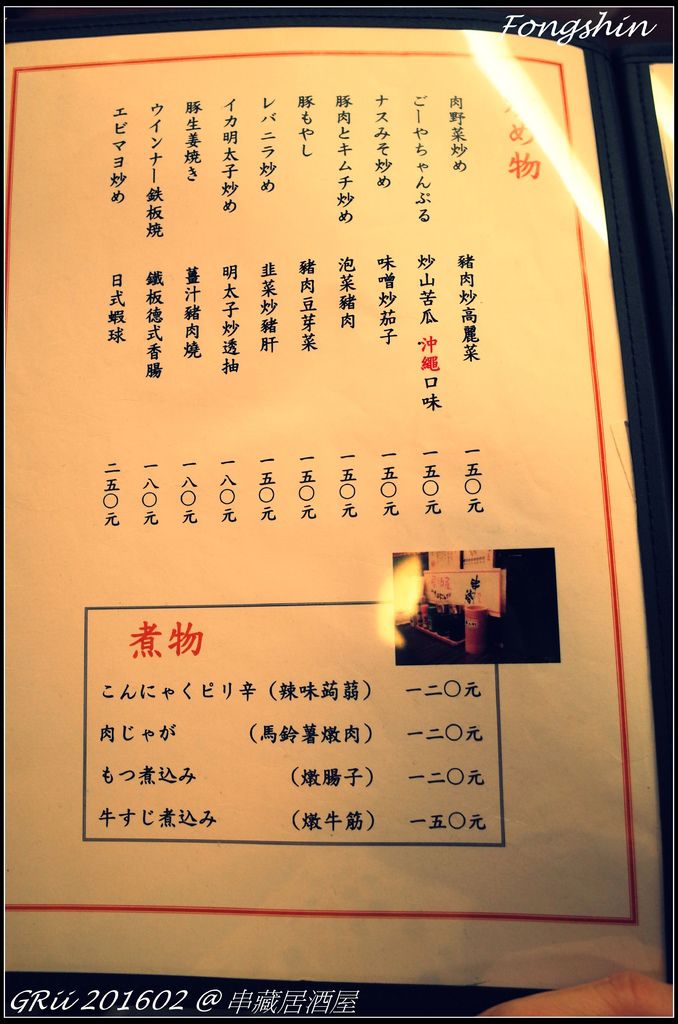 Fongshin
め物
肉野菜炒め 豬肉炒高麗菜 一五〇元
ごーやちゃんぷる 炒山苦瓜 沖繩口味 一五〇元
ナスみそ炒め 味噌炒茄子 一五〇元
豚肉とキムチ炒め 泡菜豬肉 一五〇元
豚もやし 豬肉豆芽菜 一五〇元
レバニラ炒め 韭菜炒豬肝 一五〇元
イカ明太子炒め 明太子炒透抽 一八〇元
豚生姜焼き 薑汁豬肉燒 一八〇元
ウインナー鉄板焼 鐵板德式香腸 一八〇元
エビマヨ炒め 日式蝦球 二五〇元
煮物
こんにゃくピリ辛（辣味蒟蒻） 一二〇元
肉じゃが （馬鈴薯燉肉） 一二〇元
もつ煮込み （燉腸子） 一二〇元
牛すじ煮込み （燉牛筋） 一五〇元
GRii 201602 @ 串藏居酒屋